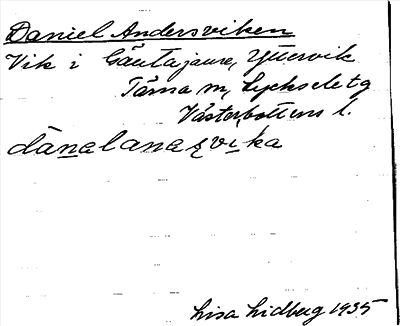 Daniel Andersviken
Vik i Gäutajaure, Yttervik
Tärna sn, Lycksele tg
Västerbottens l.
dànalanaʂvika
Lisa Lidberg 1935